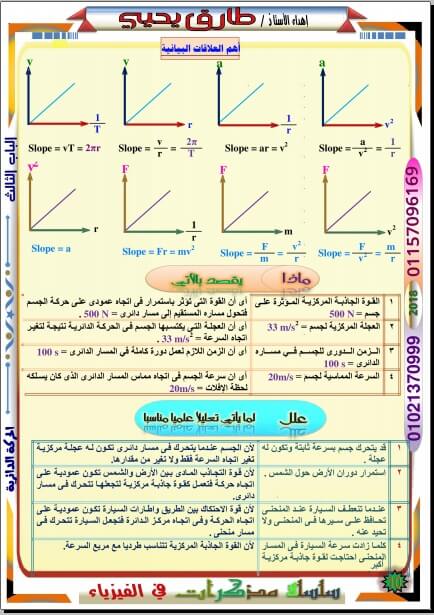 إهداء الأستاذ / طارق يحيي
أهم العلاقات البيانية
v v a a
1/T r 1/r v²
Slope = vT = 2πr Slope = v/r = 2π/T Slope = ar = v² Slope = a/v² = 1/r
v² F F F
r 1/r m v²
Slope = a Slope = Fr = mv² Slope = F/m = v²/r Slope = F/v² = m/r
ماذا يقصد بالآتي
١ القوة الجاذبة المركزية المؤثرة على جسم = 500 N
أى أن القوة التي تؤثر باستمرار فى اتجاه عمودى على حركة الجسم فتحول مساره المستقيم إلى مسار دائرى = 500 N .
٢ العجلة المركزية لجسم = 33 m/s²
أى أن العجلة التي يكتسبها الجسم فى الحركة الدائرية نتيجة لتغير اتجاه السرعة = 33 m/s² .
٣ الزمن الدورى للجسم فى مساره الدائرى = 100 s
أى أن الزمن اللازم لعمل دورة كاملة في المسار الدائرى = 100 s
٤ السرعة المماسية لجسم = 20m/s
أى ان سرعة الجسم فى اتجاه مماس المسار الدائرى الذى كان يسلكه لحظة الإفلات = 20m/s
علل لما يأتي تعليلاً علمياً مناسباً
١ قد يتحرك جسم بسرعة ثابتة وتكون له عجلة .
لأن الجسم عندما يتحرك فى مسار دائرى تكون له عجلة مركزية تغير اتجاه السرعة فقط ولا تغير من مقدارها.
٢ استمرار دوران الأرض حول الشمس .
لأن قوة التجاذب المادى بين الأرض والشمس تكون عمودية على اتجاه الحركة فتعمل كقوة جاذبة مركزية تتجعلها تتحرك فى مسار دائرى.
٣ عندما تنعطف السيارة عند المنحنى تحافظ على سيرها فى المنحنى ولا تحيد عنه .
لأن قوة الاحتكاك بين الطريق واطارات السيارة تكون عمودية على اتجاه الحركة وفى اتجاه مركز الدائرة فتجعل السيارة تتحرك فى مسار منحنى .
٤ كلما زادت سرعة السيارة فى المسار المنحنى احتاجت لقوة جاذبة مركزية أكبر
لأن القوة الجاذبة المركزية تتناسب طرديا مع مربع السرعة.
سلسلة مذكرات في الفيزياء
الباب الثالث
الحركة الدائرية
01157096169
2018
01021370999